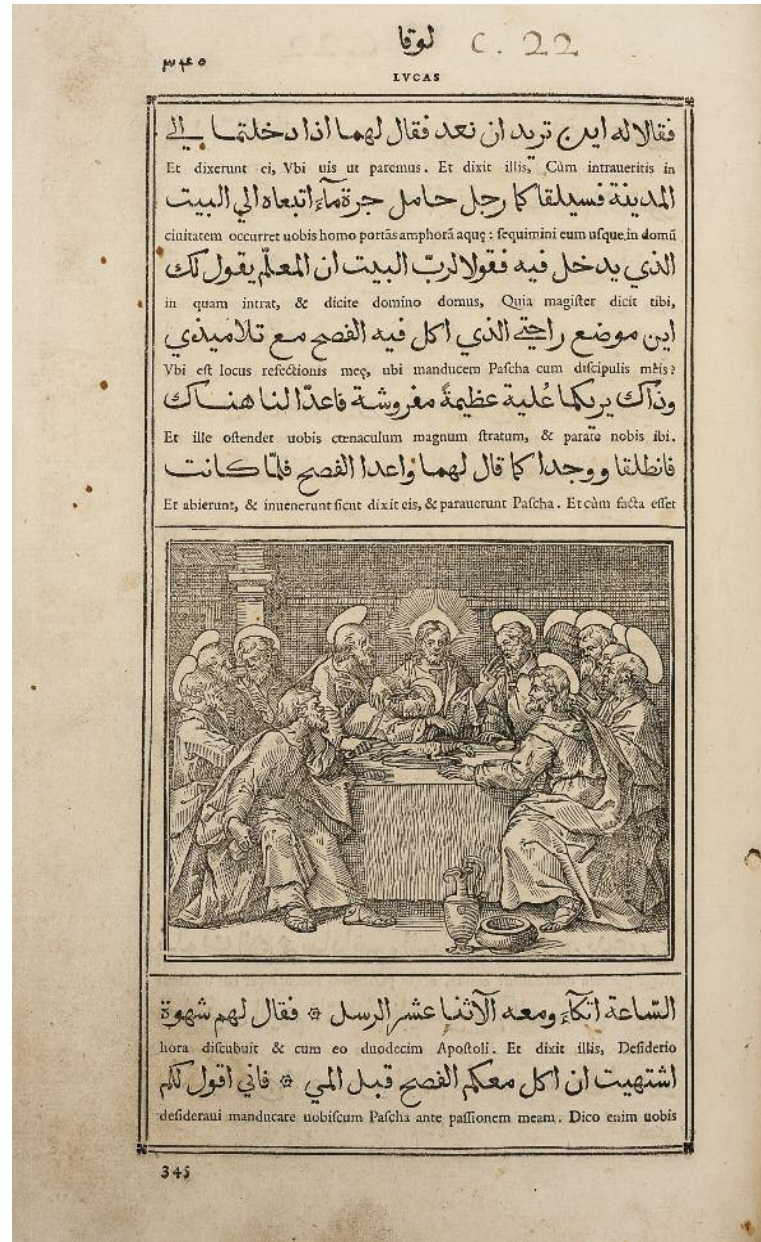 لوقا C. 22
٣٤٥
LVCAS
فقالا له اين تريد ان نعد فقال لهما اذا دخلتما الي
Et dixerunt ei, Vbi uis ut paremus. Et dixit illis, Cùm intraueritis in
المدينة فسيلقاكما رجل حامل جرة ماء اتبعاه الي البيت
ciuitatem occurret uobis homo portãs amphorã aquę: sequimini eum usque in domũ
الذي يدخل فيه فقولا لربّ البيت ان المعلّم يقول لك
in quam intrat, & dicite domino domus, Quia magister dicit tibi,
اين موضع راحتي الذي اكل فيه الفصح مع تلاميذي
Vbi est locus refectionis meę, ubi manducem Pascha cum discipulis meis?
وذاك يريكما عُلية عظيمةً مفروشة فاعدّا لنا هناك
Et ille ostendet uobis cœnaculum magnum stratum, & parate nobis ibi.
فانطلقا ووجدا كما قال لهما واعدا الفصح فلمّا كانت
Et abierunt, & inuenerunt sicut dixit eis, & parauerunt Pascha. Et cùm facta esset
السّاعة اتكاء ومعه الآثنا عشر الرسل ۞ فقال لهم شهوة
hora discubuit & cum eo duodecim Apostoli. Et dixit illis, Desiderio
اشتهيت ان اكل معكم الفصح قبل المي ۞ فاني اقول لكم
desideraui manducare uobiscum Pascha ante passionem meam. Dico enim uobis
345